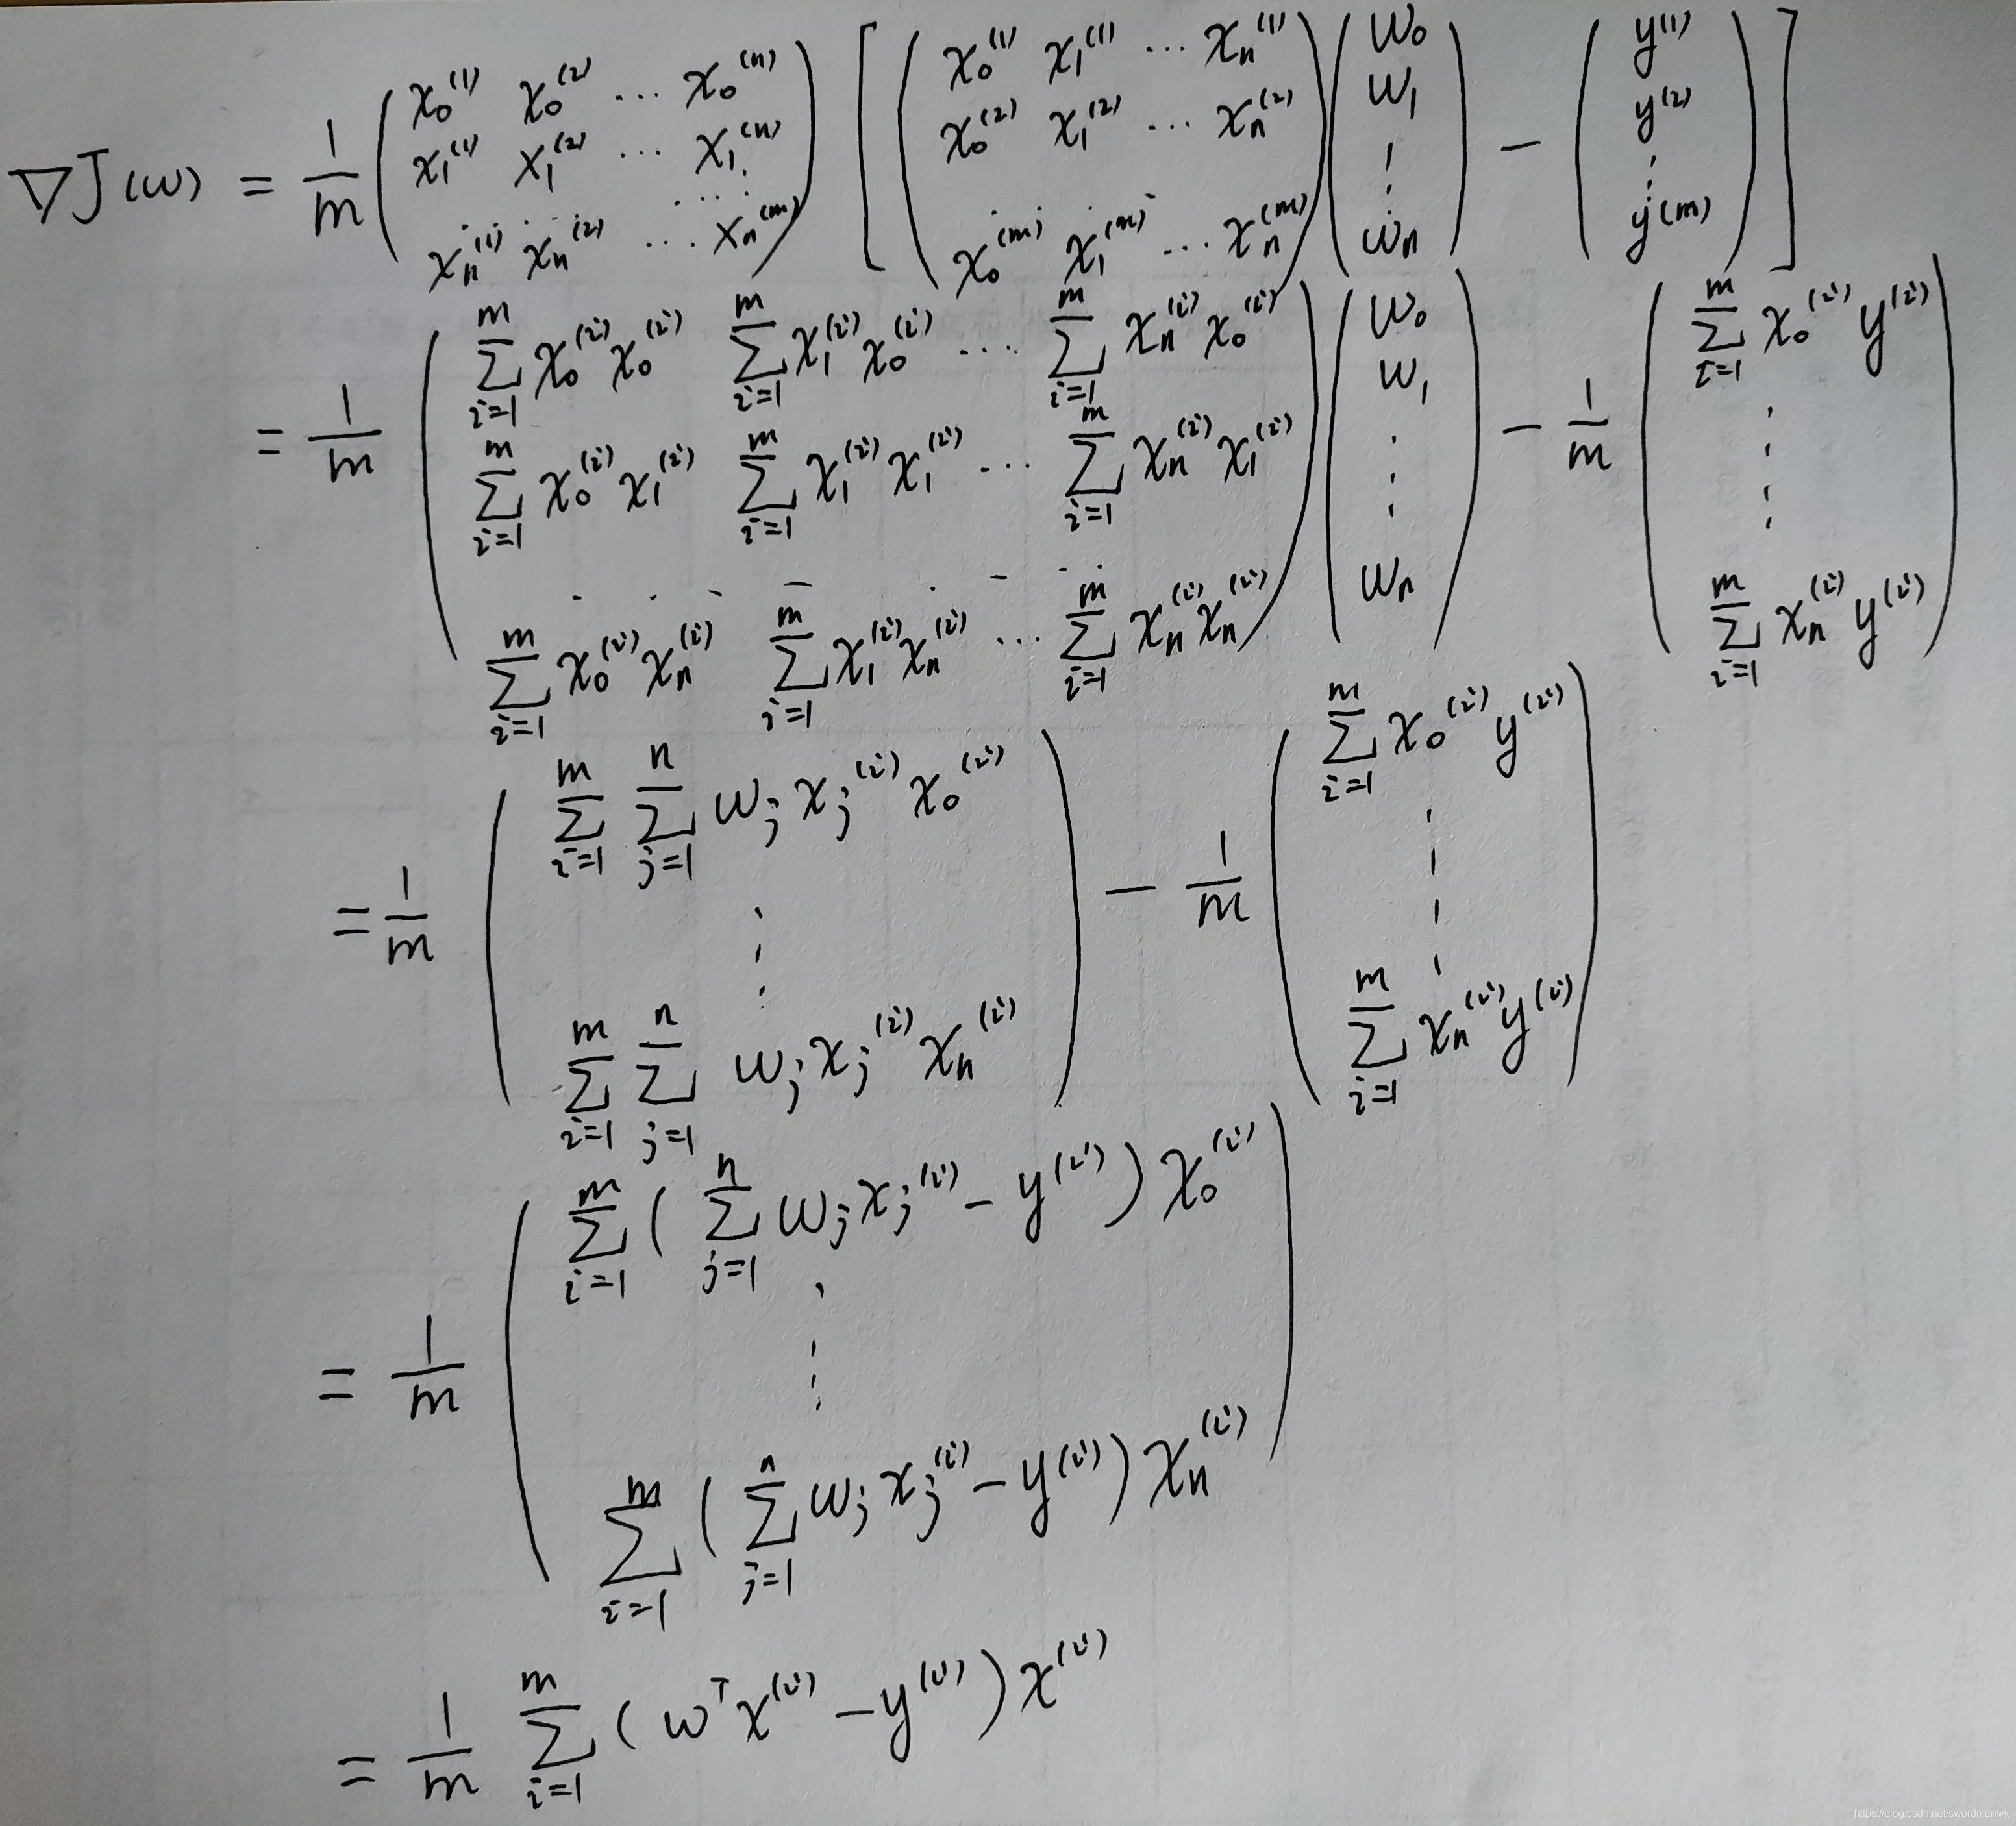 ∇J(w) = \frac{1}{m} \begin{pmatrix} x_0^{(1)} & x_0^{(2)} & \cdots & x_0^{(n)} \\ x_1^{(1)} & x_1^{(2)} & \cdots & x_1^{(n)} \\ \cdots & \cdots & \cdots & \cdots \\ x_n^{(1)} & x_n^{(2)} & \cdots & x_n^{(m)} \end{pmatrix} \left[ \begin{pmatrix} x_0^{(1)} & x_1^{(1)} & \cdots & x_n^{(1)} \\ x_0^{(2)} & x_1^{(2)} & \cdots & x_n^{(2)} \\ \cdots & \cdots & \cdots & \cdots \\ x_0^{(m)} & x_1^{(m)} & \cdots & x_n^{(m)} \end{pmatrix} \begin{pmatrix} w_0 \\ w_1 \\ \vdots \\ w_n \end{pmatrix} - \begin{pmatrix} y^{(1)} \\ y^{(2)} \\ \vdots \\ y^{(m)} \end{pmatrix} \right]
= \frac{1}{m} \begin{pmatrix} \sum_{i=1}^{m} x_0^{(i)} x_0^{(i)} & \sum_{i=1}^{m} x_1^{(i)} x_0^{(i)} & \cdots & \sum_{i=1}^{m} x_n^{(i)} x_0^{(i)} \\ \sum_{i=1}^{m} x_0^{(i)} x_1^{(i)} & \sum_{i=1}^{m} x_1^{(i)} x_1^{(i)} & \cdots & \sum_{i=1}^{m} x_n^{(i)} x_1^{(i)} \\ \cdots & \cdots & \cdots & \cdots \\ \sum_{i=1}^{m} x_0^{(i)} x_n^{(i)} & \sum_{i=1}^{m} x_1^{(i)} x_n^{(i)} & \cdots & \sum_{i=1}^{m} x_n^{(i)} x_n^{(i)} \end{pmatrix} \begin{pmatrix} w_0 \\ w_1 \\ \vdots \\ w_n \end{pmatrix} - \frac{1}{m} \begin{pmatrix} \sum_{i=1}^{m} x_0^{(i)} y^{(i)} \\ \vdots \\ \sum_{i=1}^{m} x_n^{(i)} y^{(i)} \end{pmatrix}
= \frac{1}{m} \begin{pmatrix} \sum_{i=1}^{m} \sum_{j=1}^{n} w_j x_j^{(i)} x_0^{(i)} \\ \vdots \\ \sum_{i=1}^{m} \sum_{j=1}^{n} w_j x_j^{(i)} x_n^{(i)} \end{pmatrix} - \frac{1}{m} \begin{pmatrix} \sum_{i=1}^{m} x_0^{(i)} y^{(i)} \\ \vdots \\ \sum_{i=1}^{m} x_n^{(i)} y^{(i)} \end{pmatrix}
= \frac{1}{m} \begin{pmatrix} \sum_{i=1}^{m} ( \sum_{j=1}^{n} w_j x_j^{(i)} - y^{(i)} ) x_0^{(i)} \\ \vdots \\ \sum_{i=1}^{m} ( \sum_{j=1}^{n} w_j x_j^{(i)} - y^{(i)} ) x_n^{(i)} \end{pmatrix}
= \frac{1}{m} \sum_{i=1}^{m} ( w^T x^{(i)} - y^{(i)} ) x^{(i)}
https://blog.csdn.net/swordmanwk